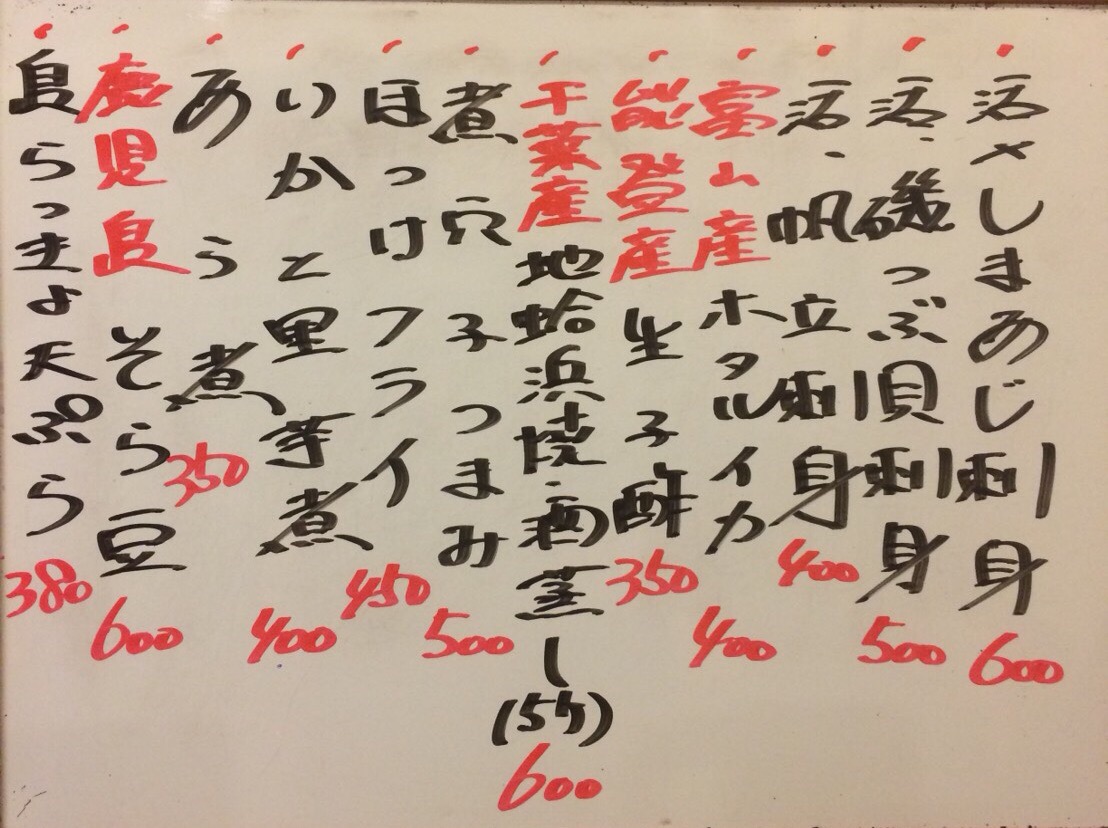 活〆しまあじ刺身 600
活・磯つぶ貝刺身 500
活・帆立刺身 400
富山産ホタルイカ 400
能登産生子酢 350
千葉産地蛤浜焼・酒蒸し(5ケ) 600
煮穴子つまみ 500
ほっけフライ 450
いかと里芋煮 400
あら煮 350
鹿児島そら豆 600
島らっきょ天ぷら 380